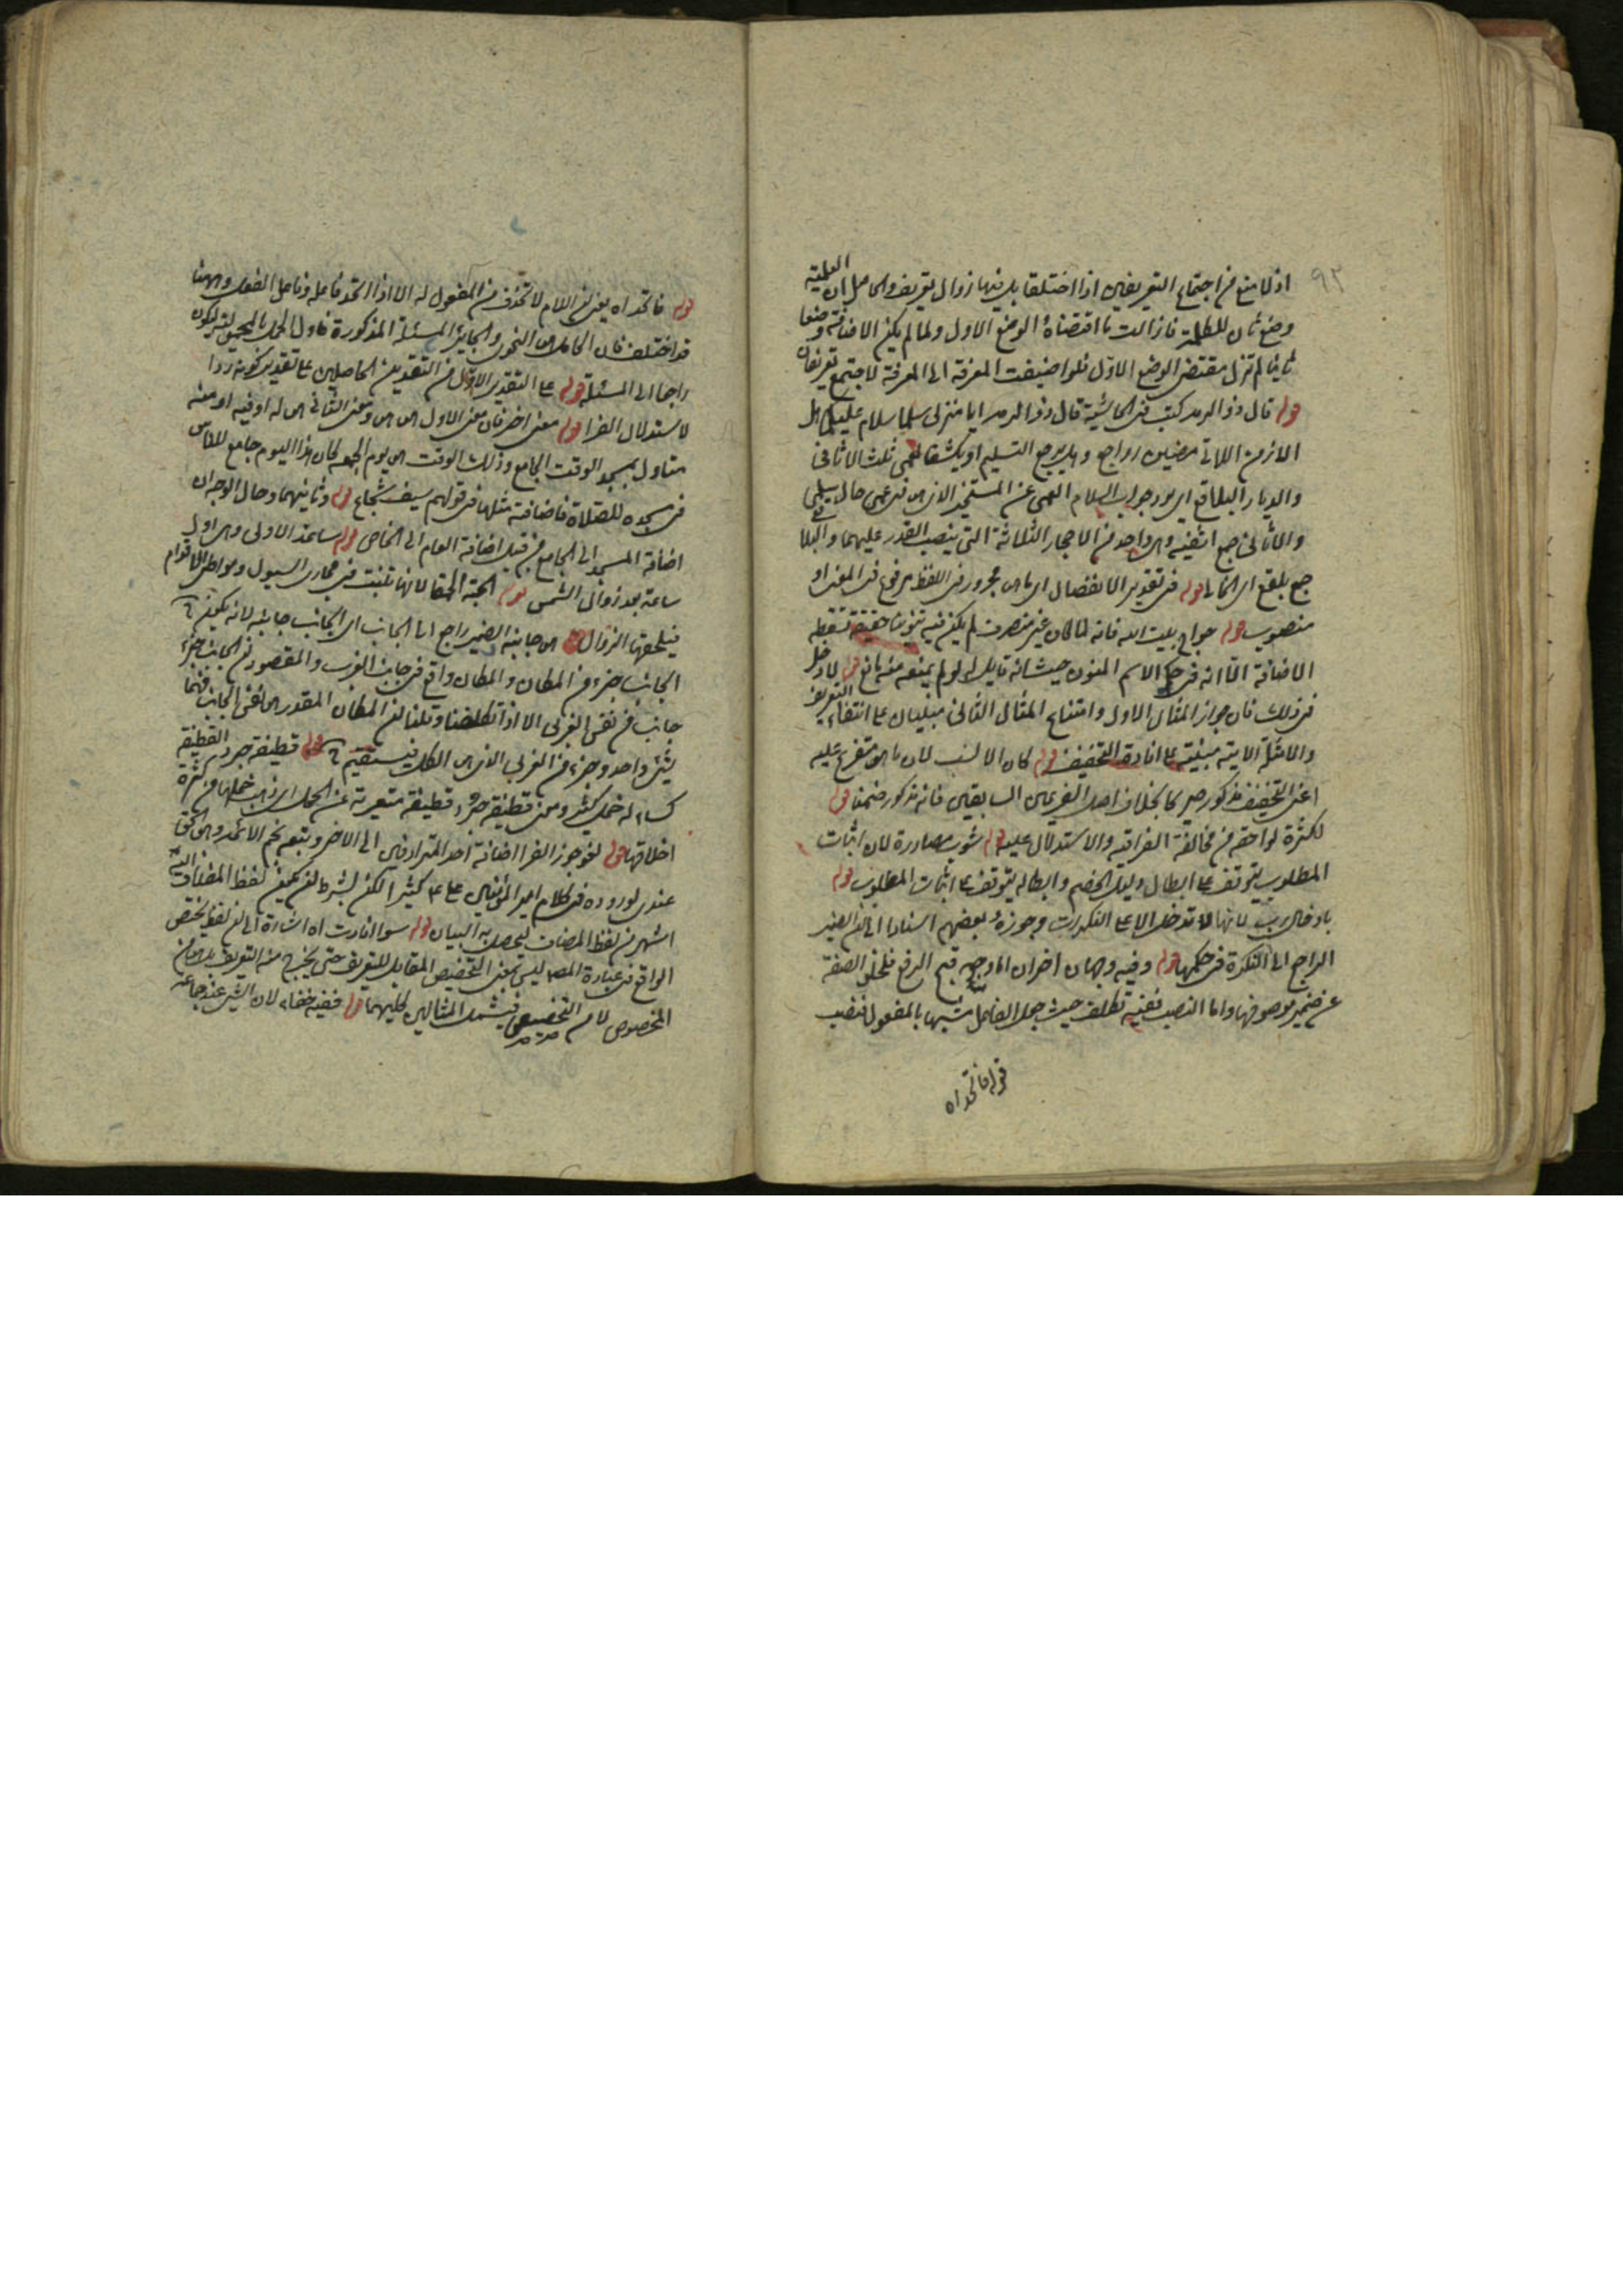 ٩٢
اذ لا منع من اجتماع التعريفين اذا اختلفا بل فيها زوال تعريف والحاصل ان العلمية
وضع ثان للكلمة فازالت ما اقتضاه الوضع الاول ولما لم يكن الاضافة وضعا
ثانيا لم تزل مقتضى الوضع الاول فلو اضيفت المعرفة الى المعرفة لاجتمع تعريفان
قوله قال ذو الرمة كتب في الحاشية قال ذو الرمة ايا منزلي سلمى سلام عليكما هل
الازمن اللاتي مضين رواجع وهل يرجع التسليم او يكشف العمى ثلث الاثافي
والديار البلاقع اي يرد جواب السلام العمى عن المستخبر الذي هو في عمى حال سلمى
والاثافي جمع اثفية وهي واحد من الاحجار الثلاثة التي ينصب القدر عليها والبلاقع
جمع بلقع اي الخالي قوله في تقدير الانفصال اي ما هو مجرور في اللفظ مرفوع في المعنى او
منصوب قوله حواج بيت الله فانه لما كان غير منصرف لم يكن فيه تنوين حقيقة تسقطه
الاضافة الا انه في حكم الاسم المنون حيث انه قابل له لو لم يمنعه منه مانع قوله لا دخل
في ذلك فان جواز المثال الاول وامتناع المثال الثاني مبنيان على انتفاء التعريف
والامثلة الاتية مبنية على افادة التخفيف قوله كان الانسب لان ما هو متفرع عليه
اعني التخفيف مذكور صريحا بخلاف اصل الفرعين السابقين فانه مذكور ضمنا قوله
لكثرة لواحقه من مخالفة الفراء فيه والاستدلال عليه قوله شوب مصادرة لان اثبات
المطلوب يتوقف على ابطال دليل الخصم وابطاله يتوقف على اثبات المطلوب قوله
بادخال رب لانها لا تدخل الا على النكرات وجوزه بعضهم استنادا الى ان الضمير
الراجع الى النكرة في حكمها قوله وفيه وجهان اخران اما وجه قبح الرفع فلخلو الصفة
عن ضمير موصوفها واما النصب ففيه تكلف حيث جعل الفاعل مشبها بالمفعول فنصب
قوله فاتحد اه
قوله فاتحد اه يعني ان اللام لا تحذف من المفعول له الا اذا اتحد فاعله وفاعل الفعل وههنا
قد اختلف فان الحامل هو النحوي والجايز المسئلة المذكورة فاول الحمل بالمحمول ليكون
راجعا الى المسئلة قوله على التقدير الاول من التقديرين الحاصلين على تقدير كونه ردا
لاستدلال الفراء قوله معنى اخر فان معنى الاول هو هو ومعنى الثاني هو له او فيه او منه
متاول بمسجد الوقت الجامع وذلك الوقت هو يوم الجمعة كان هذا اليوم جامع للناس
في مسجده للصلاة فاضافته مثلها في قولهم سيف شجاع قوله وثانيهما وحال الوجه ان
اضافة المسجد الى الجامع من قبيل اضافة العام الى الخاص قوله ساعة الاولى وهي اول
ساعة بعد زوال الشمس قوله الحبة الحمقاء لانها تنبت في مجاري السيول ومواطئ الاقدام
فيلحقها الزوال قوله هو جانبه الضمير راجع الى الجانب اي الجانب جانبه لانه يكون
الجانب جزء من المكان والمكان واقع في جانب الغرب والمقصود ان الجانب جزء
جانب من نفس الغربي الا اذا تكلفنا وقلنا ان المكان المقدر هو نفس الجانب فهما
شيء واحد وجزء من الغربي الذي هو الكل فيستقيم قوله قطيفة جرد القطيفة
كساء له خمل كثير ومعنى قطيفة جرد قطيفة متعرية عن الخمل اي ذهب خملها من كثرة
اخلاقها قوله نحو جوز الفراء اضافة احد المترادفين الى الاخر وتبعه نجم الائمة وهو الحق
عندي لوروده في كلام امير المؤمنين على عم كثيرا لكن بشرط ان يكون لفظ المضاف اليه
اشهر من لفظ المضاف ليحصل به البيان قوله سوا افادت اه اشارة الى ان لفظ يختص
الواقع في عبارة المص ليس بمعنى التخصيص المقابل للتعريف حتى يخرج منه التعريف بل هو من
الخصوص لا من التخصيص فيشمل المثالين كليهما قوله ففيه خفاء لان الشيء عند جماعة